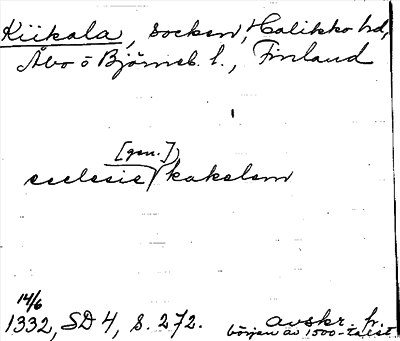 Kiikala, socken, Halikko hd,
Åbo o Björneb. l., Finland
[gen.]
ecclesie kakelem
14/6
1332, SD 4, S. 272. avskr. fr.
början av 1500-talet